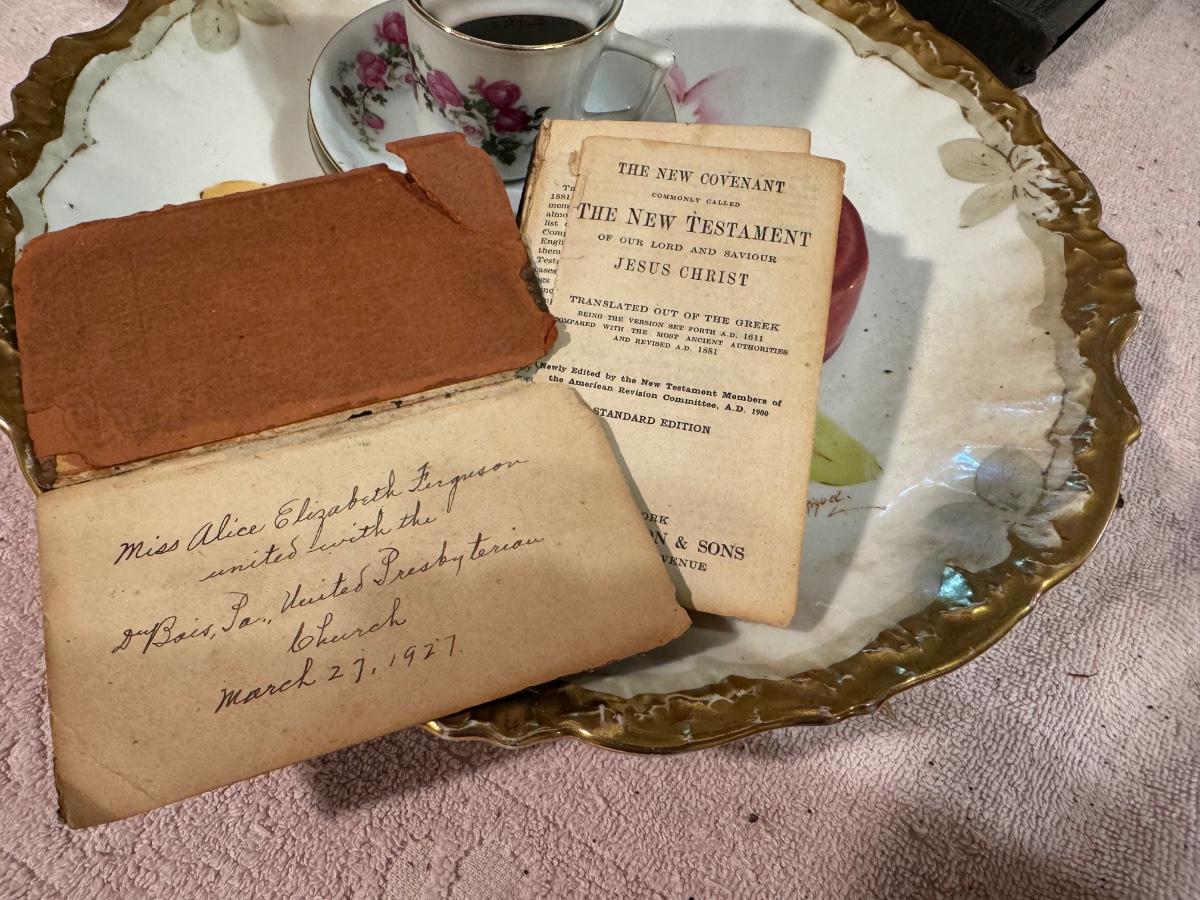 Miss Alice Elizabeth Ferguson
united with the
DuBois, Pa., United Presbyterian
Church
March 27, 1927.
THE NEW COVENANT
COMMONLY CALLED
THE NEW TESTAMENT
OF OUR LORD AND SAVIOUR
JESUS CHRIST
TRANSLATED OUT OF THE GREEK
BEING THE VERSION SET FORTH A.D. 1611
COMPARED WITH THE MOST ANCIENT AUTHORITIES
AND REVISED A.D. 1881
Newly Edited by the New Testament Members of
the American Revision Committee, A.D. 1900
STANDARD EDITION
ORK
N & SONS
VENUE
1881